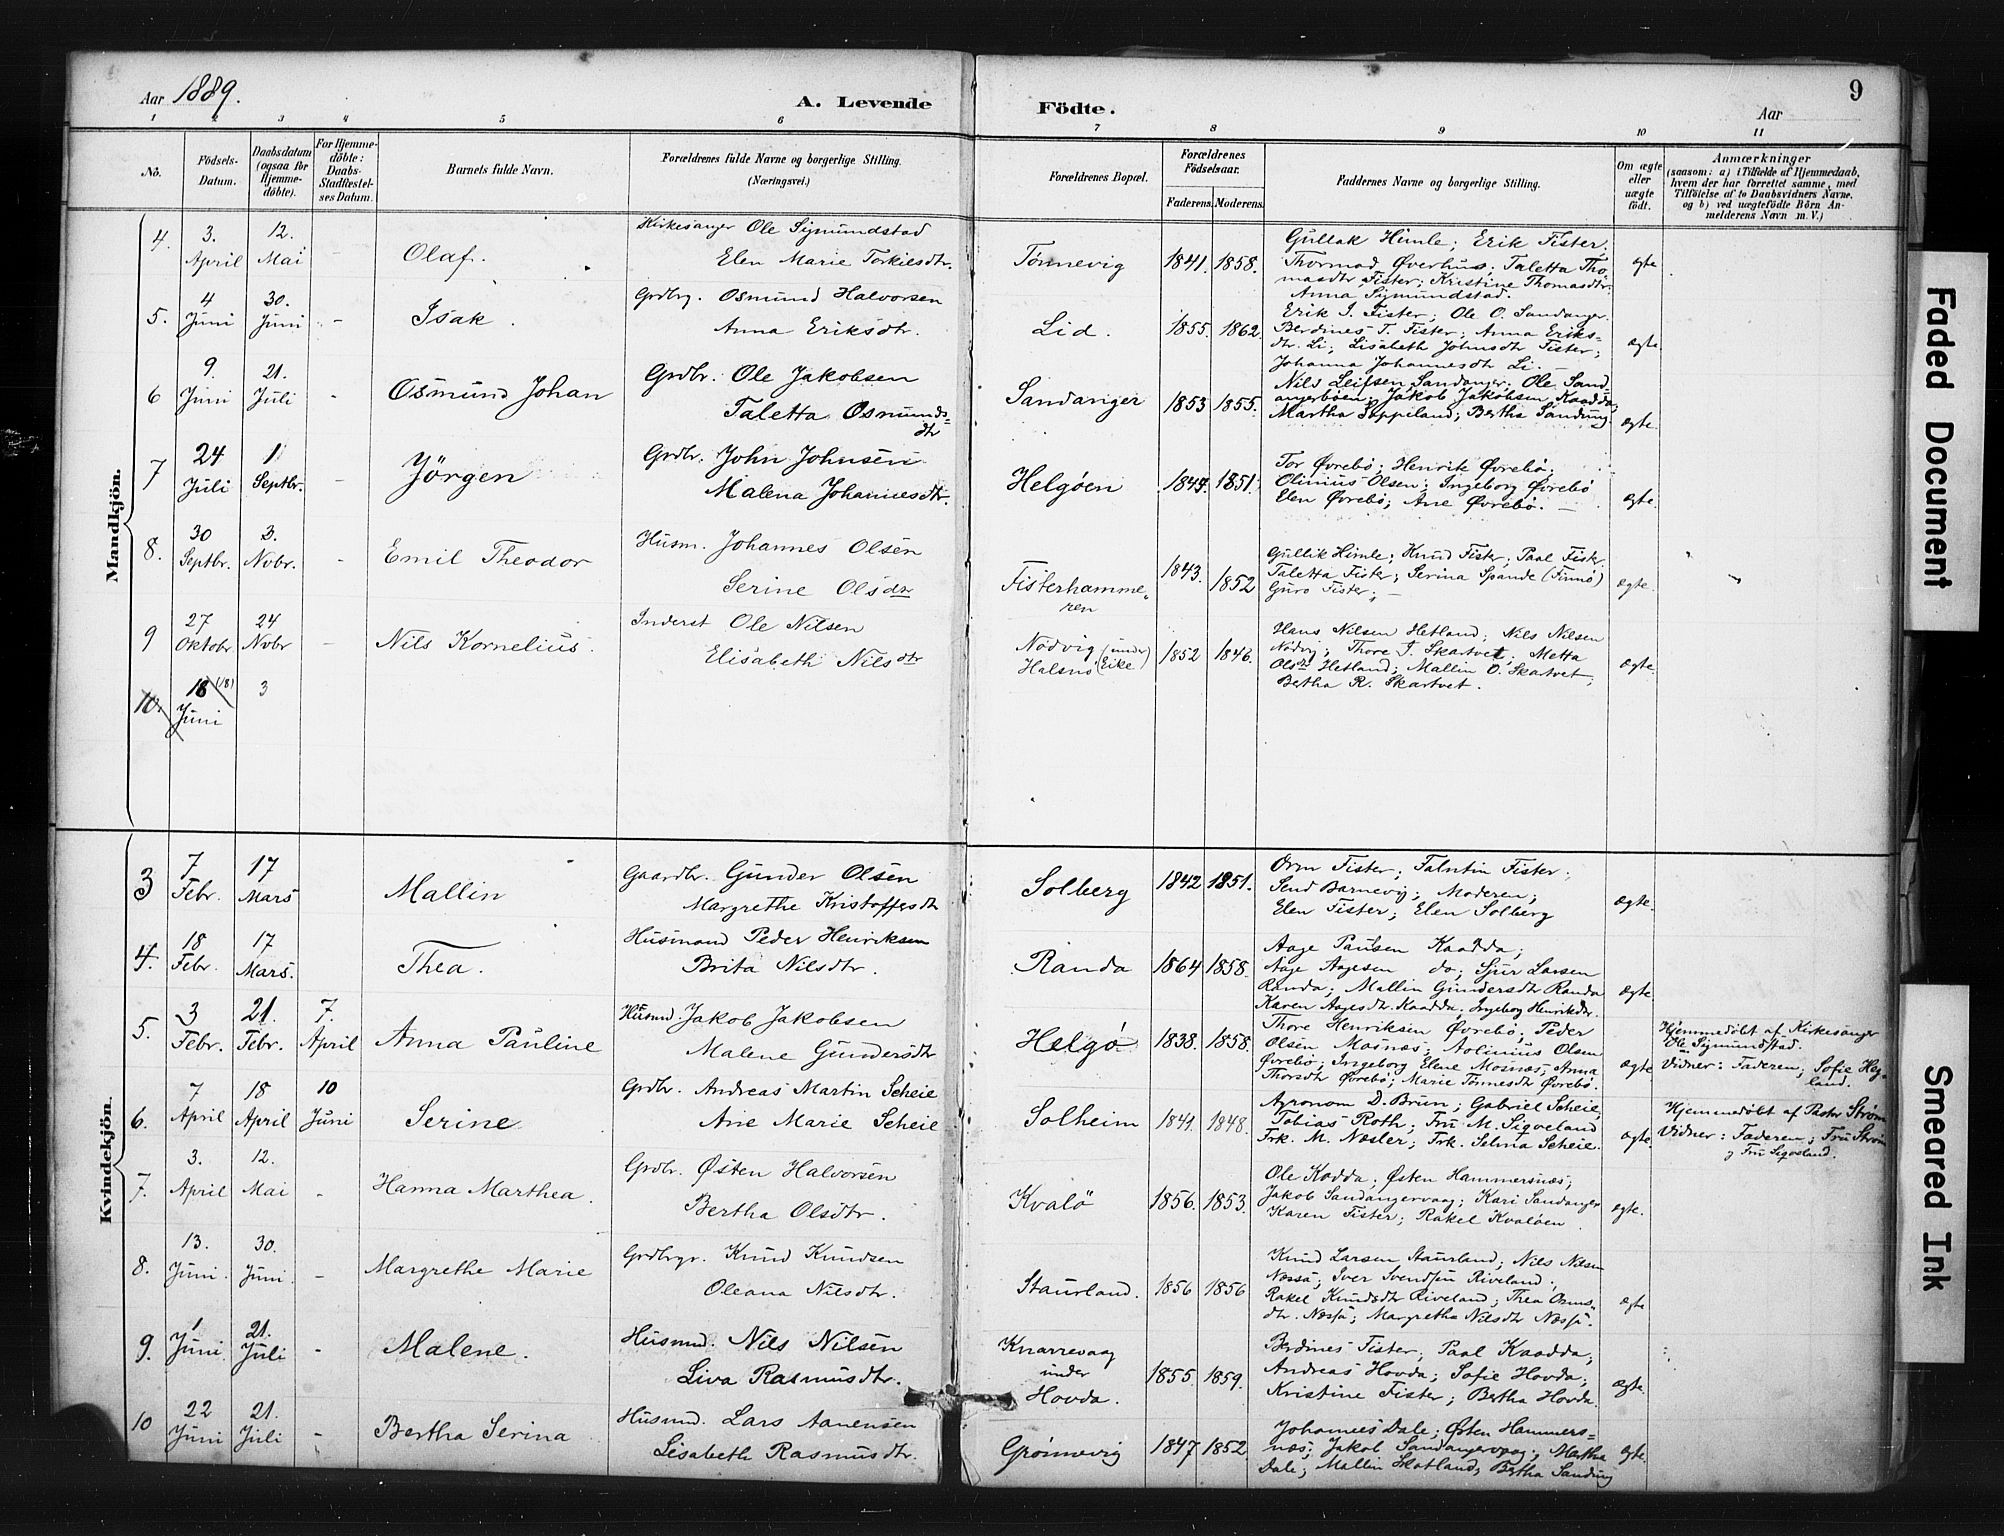 Aar 1889. A. Levende Födte. Aar 9
1 2 3 4 5 6 7 8 9 10 11
No. Födsels-Datum. Daabsdatum (ogsaa for Hjemmedöbte). For Hjemmedöbte: Daabs-Stadfæstelses Datum. Barnets fulde Navn. Forældrenes fulde Navne og borgerlige Stilling. (Næringsvei.) Forældrenes Bopæl. Forældrenes Födselsaar. Faderens. Moderens. Faddernes Navne og borgerlige Stilling. Om ægte eller uægte födt. Anmærkninger (saasom: a) i Tilfælde af Hjemmedaab, hvem der har forrettet samme, med Tilföielse af to Daabsvidners Navne, og b) ved uægtefödte Börn Anmelderens Navn m. V.)
Mandkjön.
4. 3. April 12. Mai - Olaf. Kirkesanger Ole Sigmundstad
Elen Marie Torkilsdtr. Tønnevig 1841. 1858. Gullak Himle; Erik Fister;
Thormod Øverhus; Taletta Tho-
masdtr Fister; Kristine Thomasdtr.
Anna Sigmundstad. ægte
5. 4 Juni 30. Juni - Isak. Grdbrg. Osmund Halvorsen
Anna Eriksdtr. Lid. 1855. 1862. Erik I. Fister; Ole O. Sandanger.
Berdines T. Fister; Anna Eriks-
dtr. Li; Lisabeth Johnsdtr Fister;
Johanna Johannesdtr Li. - ægte.
6 9. Juni 21. Juli - Osmund Johan Grdbr. Ole Jakobsen
Taletta Osmunds-
dtr Sandanger 1853 1855. Nils Leifsen Sandanger; Ole Sand-
angerbøen; Jakob Jakobsen Kaadda;
Martha Seppiland; Bertha Sandung. ægte.
7 24 Juli 1 Septbr. - Jörgen Grdbr. John Johnsen
Malena Johannesdtr. Helgøen 1851. Tor Øvrebø; Henrik Øvrebø;
Olinius Olsen; Ingeborg Øvrebø
Elen Øvrebø; Ane Øvrebø. - ægte.
8. 30 Septbr. 3. Novbr. - Emil Theodor Husm. Johannes Olsen
Serine Olsdtr Fisterhamme-
ren 1843. 1852 Gullik Himle; Knud Fister; Paal Fister
Taletta Fister; Serina Spande (Finnø)
Guro Fister; - ægte.
9 27 Oktobr. 24 Novbr - Nils Kornelius. Inderst Ole Nilsen
Elisabeth Nilsdtr Nødvig (under
Halsnø Eike) 1852 1846. Hans Nilsen Hetland; Nils Nilsen
Nødvig; Thore T. Skartvet; Metta
Olsdtr Hetland; Mallin O. Skartvet;
Bertha R. Skartvet. ægte.
10. 18 (18) Juni 3
Kvindekjön.
3 7 Febr. 17 Mars Mallin Gaardbr. Gunder Olsen
Margrethe Kristoffersdtr Solberg 1842 1851. Orm Fister; Talntin Fister;
Send Barnevig; Moderen;
Elen Fister; Elen Solberg ægte.
4. 18 Febr. 17 Mars. Thea. Husmand Peder Henriksen
Brita Nilsdtr. Randa 1864 1858. Aage Paulsen Kaadda;
Aage Aagesen do; Sjur Larsen
Randa; Mallin Gundersdtr Randa
Karen Aagesdtr Kaadda; Ingeborg Henriksdtr. ægte.
5. 3 Febr. 21. Febr. 7. April Anna Pauline Husmd. Jakob Jakobsen
Malene Gundersdtr Helgø 1838. 1858. Thore Henriksen Øvrebø; Peder
Olsen Mosnæs; Aolinius Olsen
Øvrebø; Ingeborg Elene Mosnæs; Anna
Thorsdtr Øvrebø; Marie Tønnesdtr Øvrebø. ægte Hjemmedøbt af Kirkesanger
Ole Sigmundstad.
Vidner: Faderen; Sofie Hey-
land.
6. 7 April 18 April 10 Juni Serine Grdbr. Andreas Martin Scheie
Ane Marie Scheie Solheim 1848. Agronom D. Brun; Gabriel Scheie,
Tobias Roth; Fru M. Sigveland
Frk. M. Næsler; Frk. Selma Scheie. ægte. Hjemmedøbt af Pastor Strøm
Vidner: Faderen; Fru Strøm
og Fru Sigveland.
7. 3. April 12. Mai - Hanna Marthea. Grdbr. Østen Halvorsen
Bertha Olsdtr. Kvalö 1856. 1853. Ole Kadda; Østen Hammersnæs;
Jakob Sandangervaag; Kari Sandanger
Karen Fister; Rakel Kvaløen ægte.
8. 13. Juni. 30. Juni. - Margrethe Marie Grdbrgr. Knud Knudsen
Oleana Nilsdtr. Staurland. 1856 1856 Knud Larsen Staurland; Nils Nilsen
Næssø; Iver Svendsen Riveland;
Rakel Knudsdtr Riveland; Thea Orms-
dtr. Næssø; Margretha Nilsdtr Næssø. ægte
9. 1 Juni 21. Juli - Malene. Husmd. Nils Nilsen
Liva Rasmusdtr. Knarrevaag
under
Hovda. 1855. 1859. Berdines Fister; Paal Kaadda;
Andreas Hovda; Sofie Hovda;
Kristine Fister; Bertha Hovda. ægte.
10 22 Juni 21. Juli - Bertha Serina Husmd. Lars Aanensen
Lisabeth Rasmusdtr. Grønnevig 1847 1852. Johannes Dale; Østen Hammers-
næs; Jakob Sandangervaag; Martha
Dale; Mallin Skotland; Bertha Sandung ægte.
Faded Document
Smeared Ink